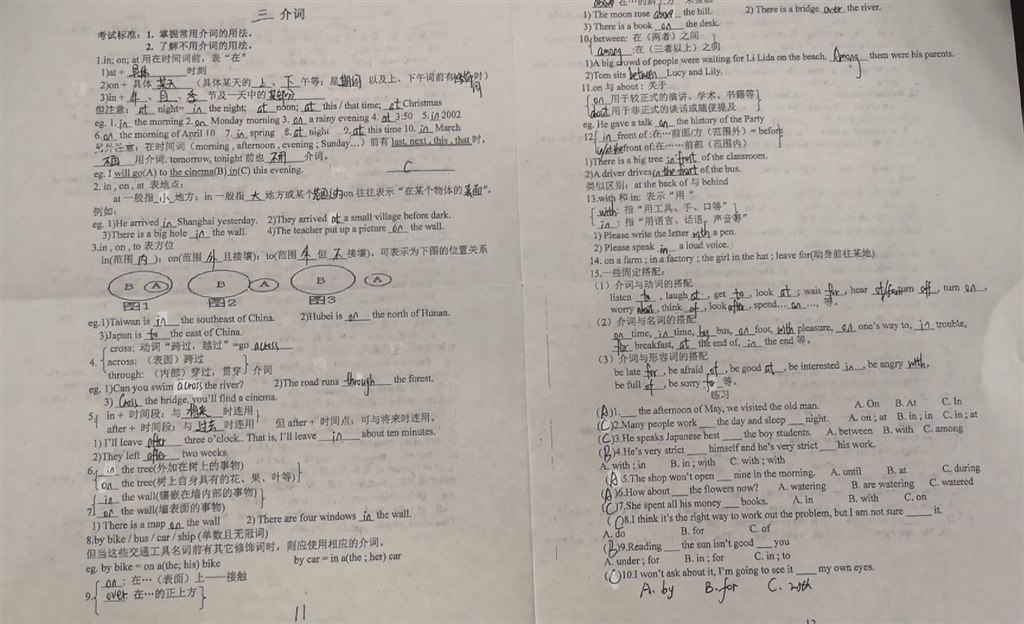 三 介词
考试标准: 1. 掌握常用介词的用法。
2. 了解不用介词的用法。
1.in; on; at 用在时间词前, 表“在”
1)at + 具体 时刻
2)on + 具体 某天 (具体某天的 上、下 午等; 星期词 以及上、下午词前有修饰词时)
3)in + 年、月、季 节及一天中的某部分
但注意: at night= in the night; at noon; at this / that time; at Christmas
eg. 1. in the morning 2. on Monday morning 3. on a rainy evening 4. at 3:50 5. in 2002
6. on the morning of April 10 7. in spring 8. at night 9. at this time 10. in March
另外注意: 在时间词 (morning , afternoon , evening ; Sunday…) 前有 last, next , this , that 时,
不用 用介词. tomorrow, tonight 前也 不用 介词。
eg. I will go(A) to the cinema(B) in(C) this evening. C
2. in , on , at 表地点:
at 一般指 小 地方; in 一般指 大 地方或某个范围内; on 往往表示“在某个物体的 表面”。
例如:
eg. 1)He arrived in Shanghai yesterday. 2)They arrived at a small village before dark.
3)There is a big hole in the wall. 4)The teacher put up a picture on the wall.
3.in , on , to 表方位
in(范围 内 ); on(范围 外 且接壤); to(范围 外 但 不 接壤)。可表示为下图的位置关系
B A B A B A
图1 图2 图3
eg.1)Taiwan is in the southeast of China. 2)Hubei is on the north of Hunan.
3)Japan is to the east of China.
cross: 动词“跨过, 越过”=go across
4. across: (表面) 跨过
through: (内部) 穿过, 贯穿 介词
eg. 1)Can you swim across the river? 2)The road runs through the forest.
3) Cross the bridge, you'll find a cinema.
5. in + 时间段: 与 将来 时连用
after + 时间段: 与 过去 时连用 但 after + 时间点: 可与将来时连用。
1) I'll leave after three o'clock. That is, I'll leave in about ten minutes.
2)They left after two weeks.
6. in the tree(外加在树上的事物)
on the tree(树上自身具有的花、果、叶等)
7. in the wall(镶嵌在墙内部的事物)
on the wall(墙表面的事物)
1) There is a map on the wall 2) There are four windows in the wall.
8.by bike / bus / car / ship (单数且无冠词)
但当这些交通工具名词前有其它修饰词时, 则应使用相应的介词。
eg. by bike = on a(the; his) bike by car = in a(the ; her) car
9. on : 在…(表面) 上——接触
over: 在…的正上方
11
1) The moon rose above the hill. 2) There is a bridge over the river.
3) There is a book on the desk.
10. between: 在 (两者) 之间
among :在 (三者以上) 之间
1)A big crowd of people were waiting for Li Lida on the beach. Among them were his parents.
2)Tom sits between Lucy and Lily.
11.on 与 about : 关于
on 用于较正式的演讲、学术、书籍等
about 用于非正式的谈话或随便提及
eg. He gave a talk on the history of the Party
12. in front of :在…前面/方 (范围外) = before
in the front of:在……前部 (范围内)
1)There is a big tree in front of the classroom.
2)A driver drives in the front of the bus.
类似区别: at the back of 与 behind
13.with 和 in: 表示“用“
with: 指“用工具、手、口等”
in : 指“用语言、话语、声音等”
1) Please write the letter with a pen.
2) Please speak in a loud voice.
14. on a farm ; in a factory ; the girl in the hat ; leave for(动身前往某地)
15.一些固定搭配:
(1) 介词与动词的搭配
listen to , laugh at , get to , look at ; wait for , hear of/from turn off , turn on ,
worry about , think of , look after , spend… on …, 等。
(2) 介词与名词的搭配
on time, in time, by bus, on foot, with pleasure, on one's way to, in trouble,
for breakfast, at the end of, in the end 等。
(3) 介词与形容词的搭配
be late for , be afraid of , be good at , be interested in , be angry with,
be full of , be sorry for 等。
练习
(A)1.___ the afternoon of May, we visited the old man. A. On B. At C. In
(C)2.Many people work ___ the day and sleep ___ night. A. on ; at B. in ; in C. in ; at
(C)3.He speaks Japanese best ___ the boy students. A. between B. with C. among
(B)4.He's very strict ___ himself and he's very strict ___ his work.
A. with ; in B. in ; with C. with ; with
(A)5.The shop won't open ___ nine in the morning. A. until B. at C. during
(A)6.How about ___ the flowers now? A. watering B. are watering C. watered
(C)7.She spent all his money ___ books. A. in B. with C. on
(C)8.I think it's the right way to work out the problem, but I am not sure ___ it.
A. do B. for C. of
(B)9.Reading ___ the sun isn't good ___ you
A. under ; for B. in ; for C. in ; to
(C)10.I won't ask about it, I'm going to see it ___ my own eyes.
A. by B. for C. with